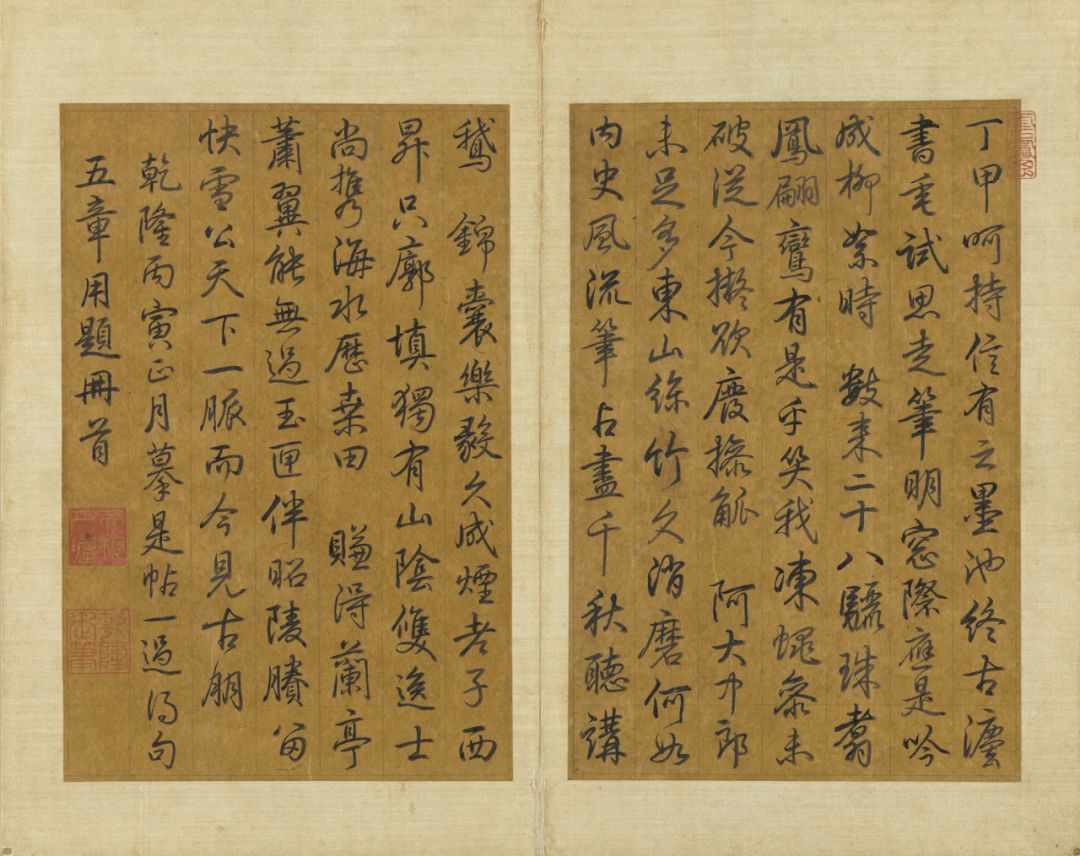 丁甲呵持信有之墨池終古瀍
書毫試思走筆明窓際應是吟
成柳絮時 數來二十八驪珠翥
鳳翩鸞有是乎笑我凍蠅叅未
破從今擬欲廢操觚 阿大中郎
未足多東山絲竹久消磨何如
內史風流筆占盡千秋聽講
鵝 錦囊樂毅久成煙老子西
昇只廓填獨有山陰雙逸士
尚攜海水歷桒田 賺得蘭亭
蕭翼能無過玉匣伴昭陵賸留
快雪公天下一脈而今見古朋
乾隆丙寅正月摹是帖一過得句
五章用題冊首
乾隆
御筆